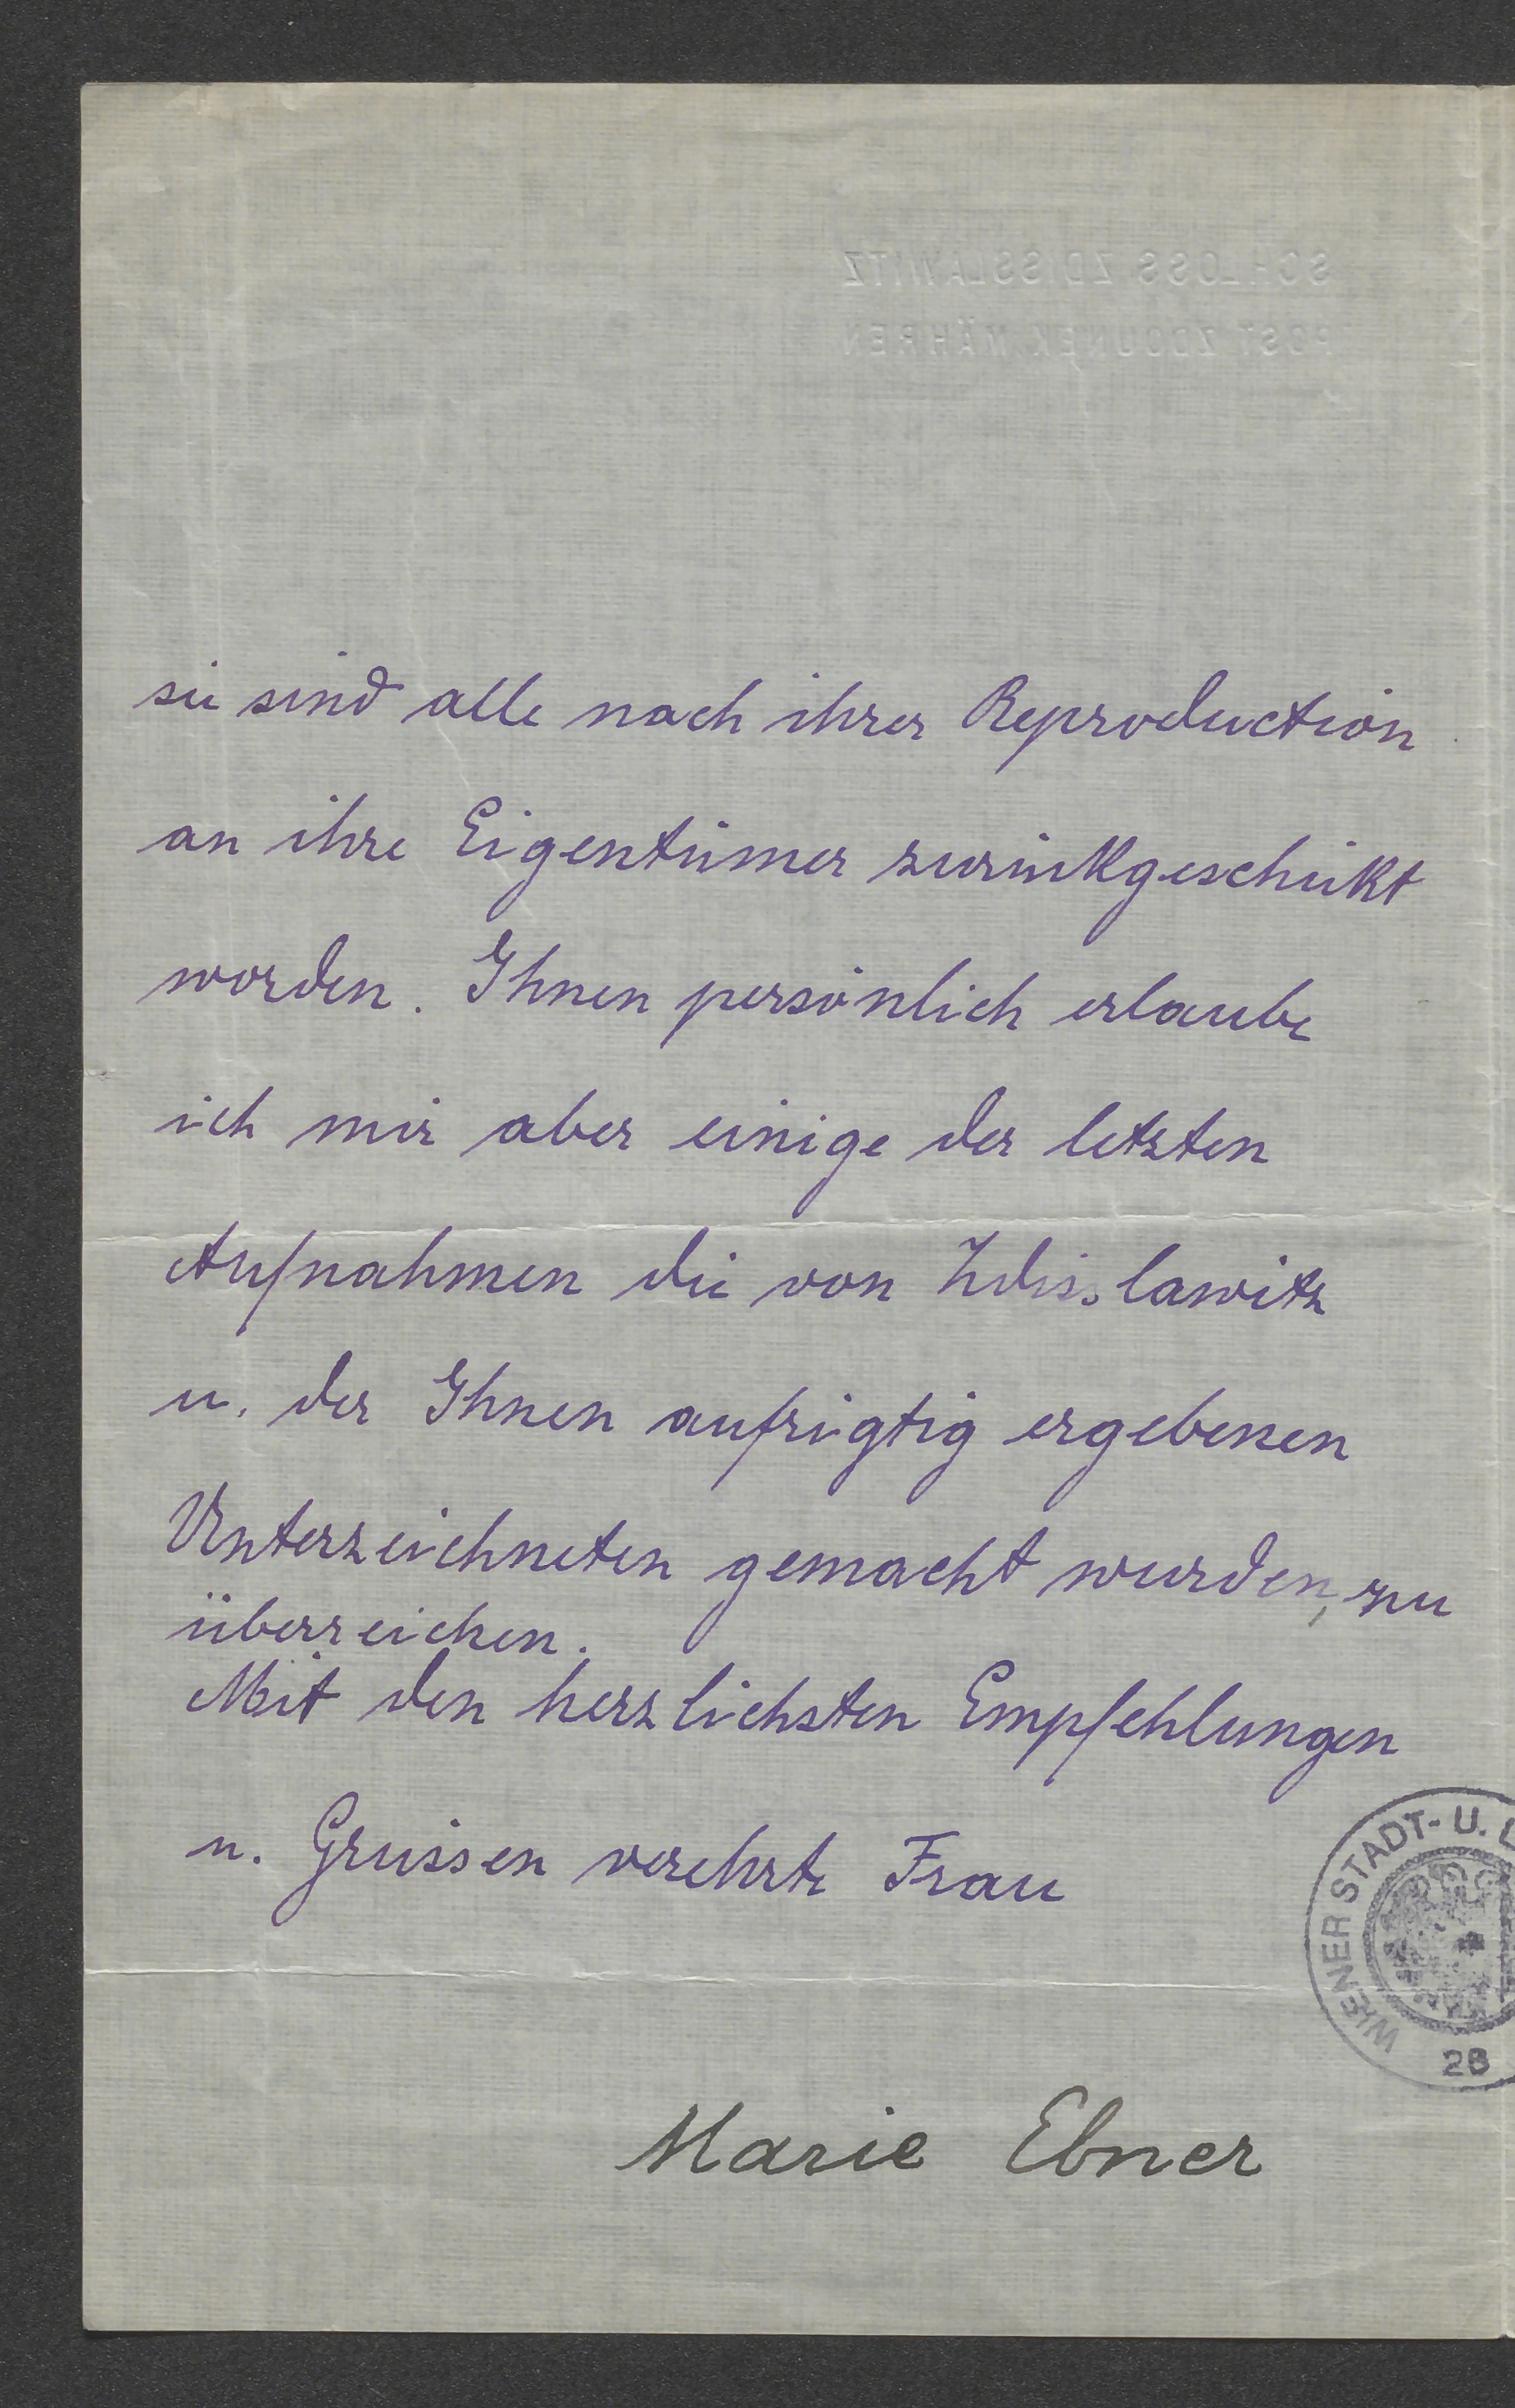 SCHLOSS ZDISSLAWITZ
POST ZDOUNEK, MÄHREN
sie sind alle nach ihrer Reproduction
an ihre Eigentümer zurückgeschickt
worden. Ihnen persönlich erlaube
ich mir aber einige der letzten
Aufnahmen die von Zdisslawitz
u. der Ihnen aufrigtig ergebenen
Unterzeichneten gemacht wurden, zu
überreichen.
Mit den herzlichsten Empfehlungen
u. Grüssen verehrte Frau
Marie Ebner
WIENER STADT- U. L
28